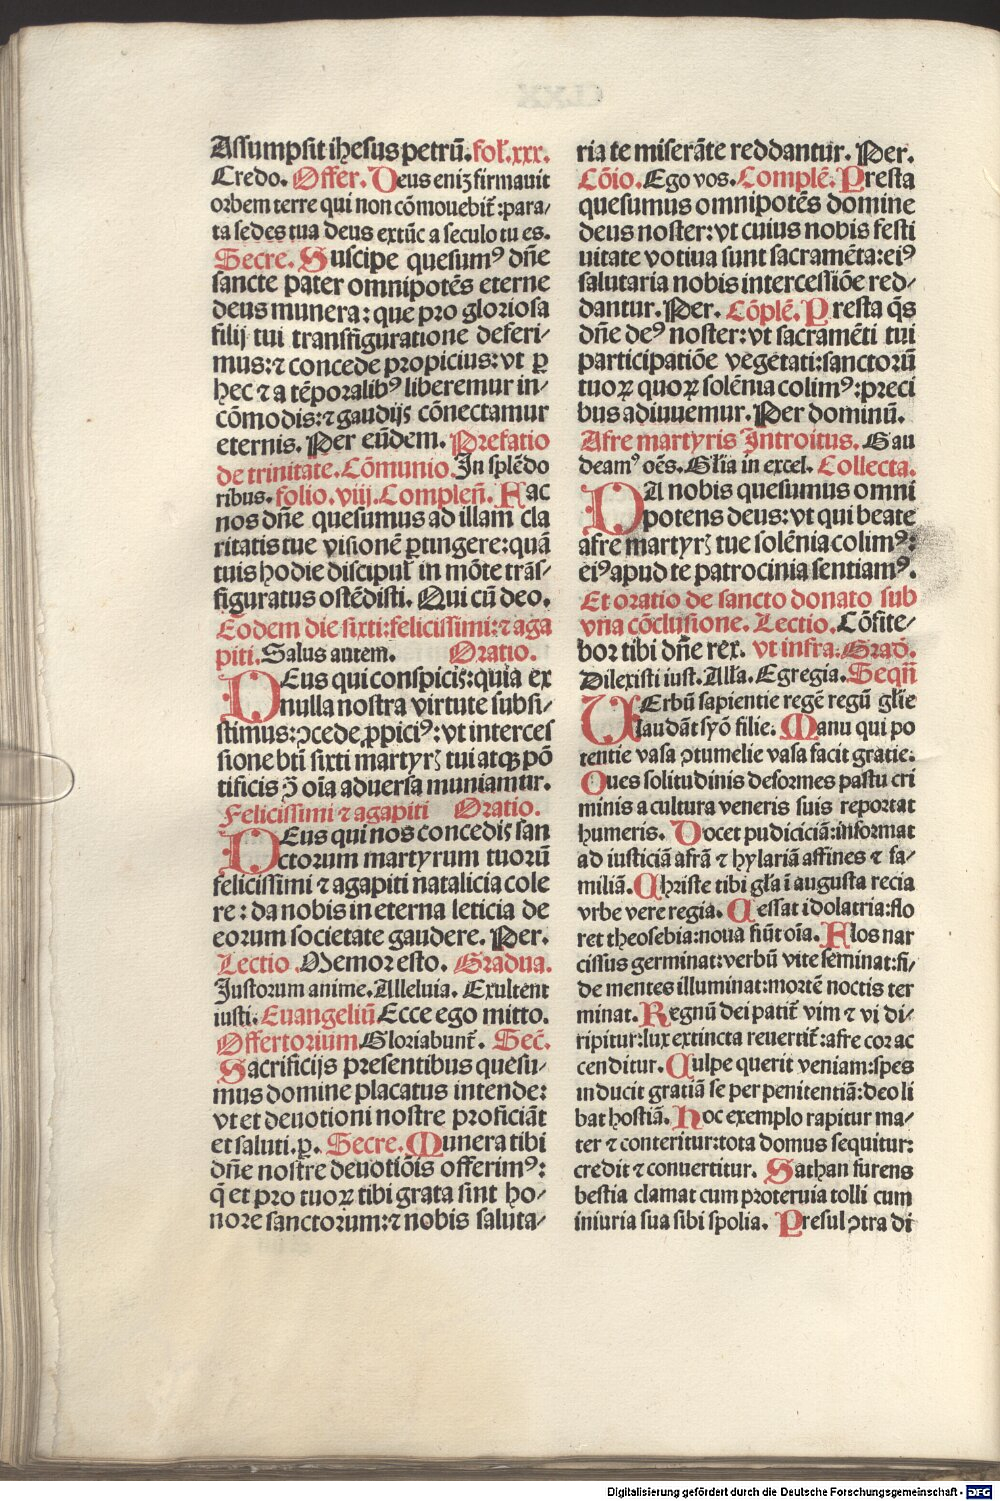 Assumpsit ihesus petrū. fol'. xxx.
Credo. Offer. Deus eniʒ firmauit
orbem terre qui non cōmouebit̄: para⸗
ta sedes tua deus extūc a seculo tu es.
Secre. Suscipe quesumꝰ dn̄e
sancte pater omnipotēs eterne
deus munera: que pro gloriosa
filij tui transfiguratione deferi⸗
mus: ⁊ concede propicius: vt ꝑ
hec ⁊ a tēporalibꝰ liberemur in⸗
cōmodis: ⁊ gaudijs cōnectamur
eternis. Per eūdem. Prefatio
de trinitate. Cōmunio. In splēdo
ribus. folio. viij. Complen̄. Fac
nos dn̄e quesumus ad illam cla
ritatis tue visionē ꝑtingere: quā
tuis hodie discipul' in mōte trās⸗
figuratus ostēdisti. Qui cū deo.
Eodem die sixti: felicissimi: ⁊ aga
piti. Salus autem. Oratio.
DEus qui conspicis: quia ex
nulla nostra virtute subsi⸗
stimus: ꝯcede ꝓpiciꝰ: vt interces
sione bt̄i sixti martyrꝭ tui atqꝫ pō
tificis ꝯ̄ oīa aduersa muniamur.
Felicissimi ⁊ agapiti Oratio.
DEus qui nos concedis san
ctorum martyrum tuorū
felicissimi ⁊ agapiti natalicia cole
re: da nobis in eterna leticia de
eorum societate gaudere. Per.
Lectio. Memor esto. Gradua.
Justorum anime. Alleluia. Exultent
iusti. Euangeliū Ecce ego mitto.
Offertorium. Gloriabunt̄. Sec̄.
Sacrificijs presentibus quesu⸗
mus domine placatus intende:
vt et deuotioni nostre proficiāt
et saluti. ꝑ. Secre. Munera tibi
dn̄e nostre deuotiōis offerimꝰ:
q̄ et pro tuoꝝ tibi grata sint ho⸗
nore sanctorum: ⁊ nobis saluta⸗
ria te miserāte reddantur. Per.
Cōio. Ego vos. Complē. Presta
quesumus omnipotēs domine
deus noster: vt cuius nobis festi
uitate votiua sunt sacramēta: eiꝰ
salutaria nobis intercessiōe red⸗
dantur. Per. Cōplē. Presta q̄s
dn̄e deꝰ noster: vt sacramēti tui
participatiōe vegetati: sanctorū
tuoꝝ quoꝝ solēnia colimꝰ: preci
bus adiuuemur. Per dominū.
Afre martyris Introitus. Gau
deamꝰ oēs. Gl'ia in excel. Collecta.
DA nobis quesumus omni
potens deus: vt qui beate
afre martyrꝭ tue solēnia colimꝰ:
eiꝰ apud te patrocinia sentiamꝰ.
Et oratio de sancto donato sub
vna cōclusione. Lectio. Cōfite⸗
bor tibi dn̄e rex. vt infra. Grad̄.
Dilexisti iust. Alľa. Egregia. Seqn̄
VErbū sapientie regē regū gl'ie
laudāt syō filie. Manu qui po
tentie vasa ꝯtumelie vasa facit gratie:
Oues solitudinis deformes pastu cri
minis a cultura veneris suis reportat
humeris. Docet pudiciciā: informat
ad iusticiā afrā ⁊ hylariā affines ⁊ fa⸗
miliā. Christe tibi gľa ī augusta recia
vrbe vere regia. Cessat idolatria: flo
ret theosebia: noua fiūt oīa. Flos nar
cissus germinat: verbū vite seminat: fi⸗
de mentes illuminat: mortē noctis ter
minat. Regnū dei patit̄ vim ⁊ vi di⸗
ripitur: lux extincta reuertit̄: afre cor ac
cenditur. Culpe querit veniam: spes
inducit gratiā se per penitentiā: deo li
bat hostiā. Hoc exemplo rapitur ma⸗
ter ⁊ conteritur: tota domus sequitur:
credit ⁊ conuertitur. Sathan furens
bestia clamat cum proteruia tolli cum
iniuria sua sibi spolia. Presul ꝯtra di
Digitalisierung gefördert durch die Deutsche Forschungsgemeinschaft - DFG